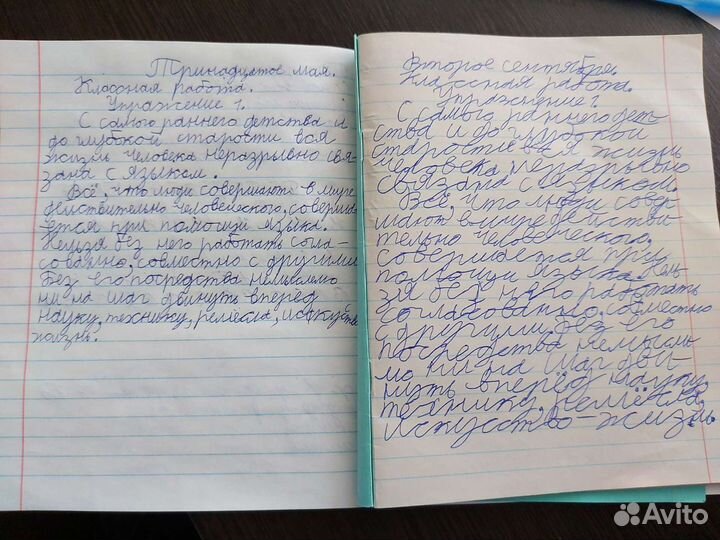 Тринадцатое мая.
Классная работа.
Упражнение 1.
С самого раннего детства и
до глубокой старости вся
жизнь человека неразрывно свя-
зана с языком.
Всё, что люди совершают в мире
действительно человеческого, соверша-
ется при помощи языка.
Нельзя без него работать согла-
сованно, совместно с другими.
Без его посредства немыслимо
ни на шаг двинуть вперёд
науку, технику, ремёсла, искусство
жизнь.
Второе сентября.
Классная работа.
Упражнение 1.
С самого раннего дет-
ства и до глубокой
старости вся жизнь
человека неразрывно
связана с языком.
Всё, что люди совер-
шают в мире действи-
тельно человеческого,
совершается при
помощи языка. Нель-
зя без него работать
согласованно, совместно
с другими. Без его
посредства немысли-
мо ни на шаг дви-
нуть вперёд науку,
технику, ремёсла,
искусство – жизнь.
Avito